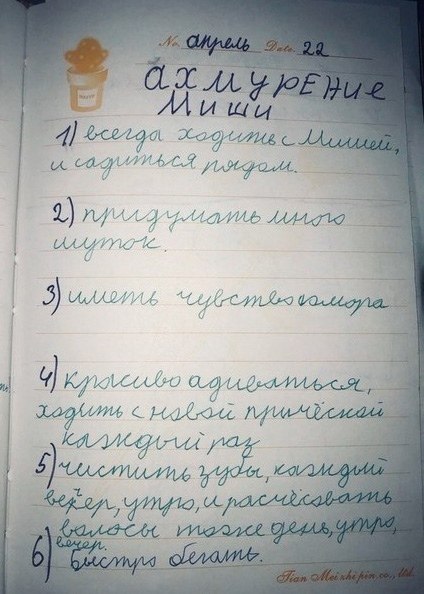 No. апрель Date. 22
АХМУРЕНИЕ
МИШИ
1) всегда ходить с Мишей,
и садиться рядом.
2) придумать много
шуток.
3) иметь чувство юмора
4) красиво адиваться,
ходить с новой причёской
каждый раз
5) чистить зубы, каждый
вечер, утро, и расчёсовать
волосы тоже день, утро,
вечер.
6) Быстро бегать.
Tian Mei zhi pin co., Ltd.